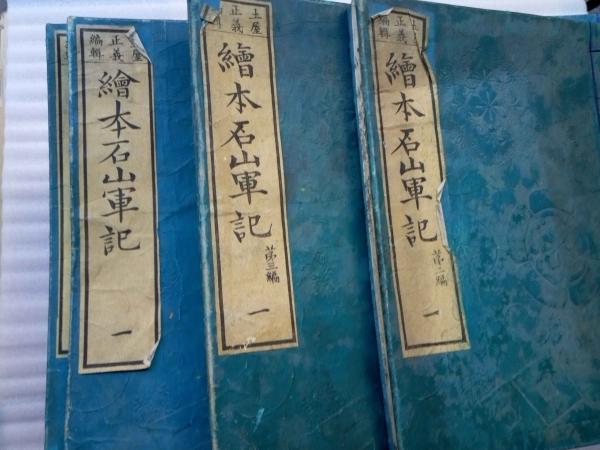 土屋
正義
編輯
繪本石山軍記
第二編
一
土屋
正義
繪本石山軍記
第三編
一
屋
正義
編輯
繪本石山軍記
一